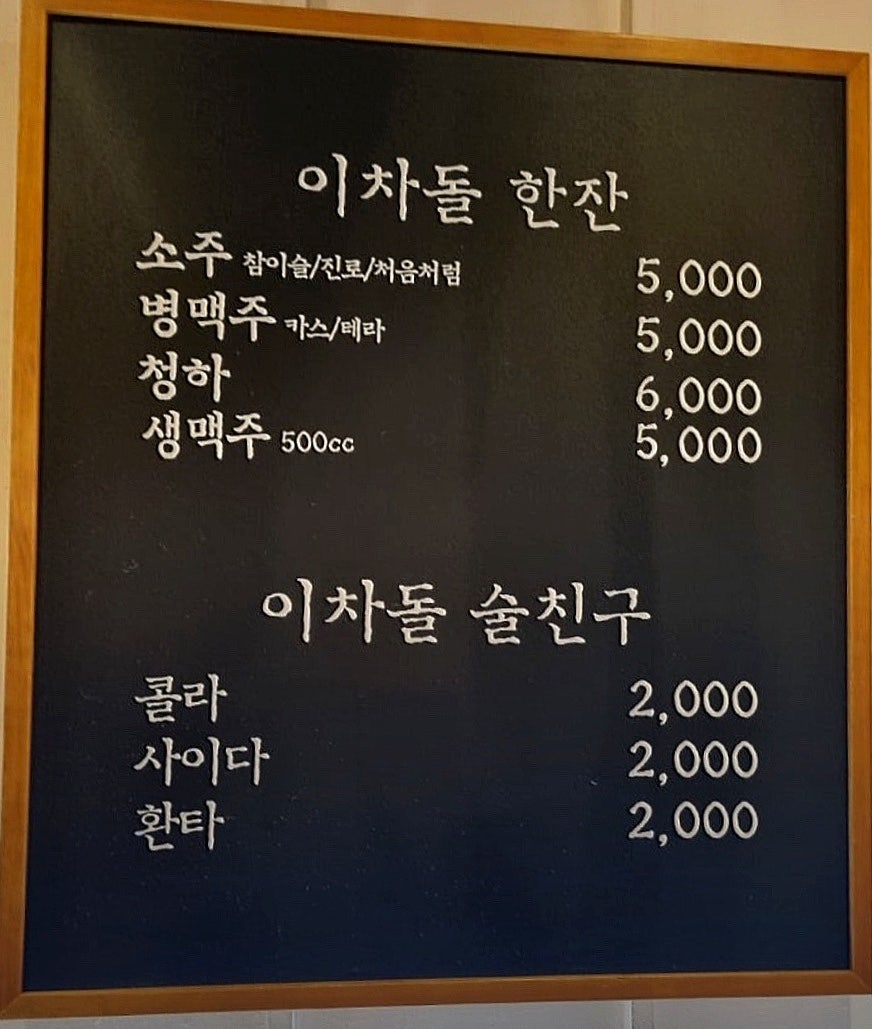 이차돌 한잔
소주 참이슬/진로/처음처럼 5,000
병맥주 카스/테라 5,000
청하 6,000
생맥주 500cc 5,000
이차돌 술친구
콜라 2,000
사이다 2,000
환타 2,000